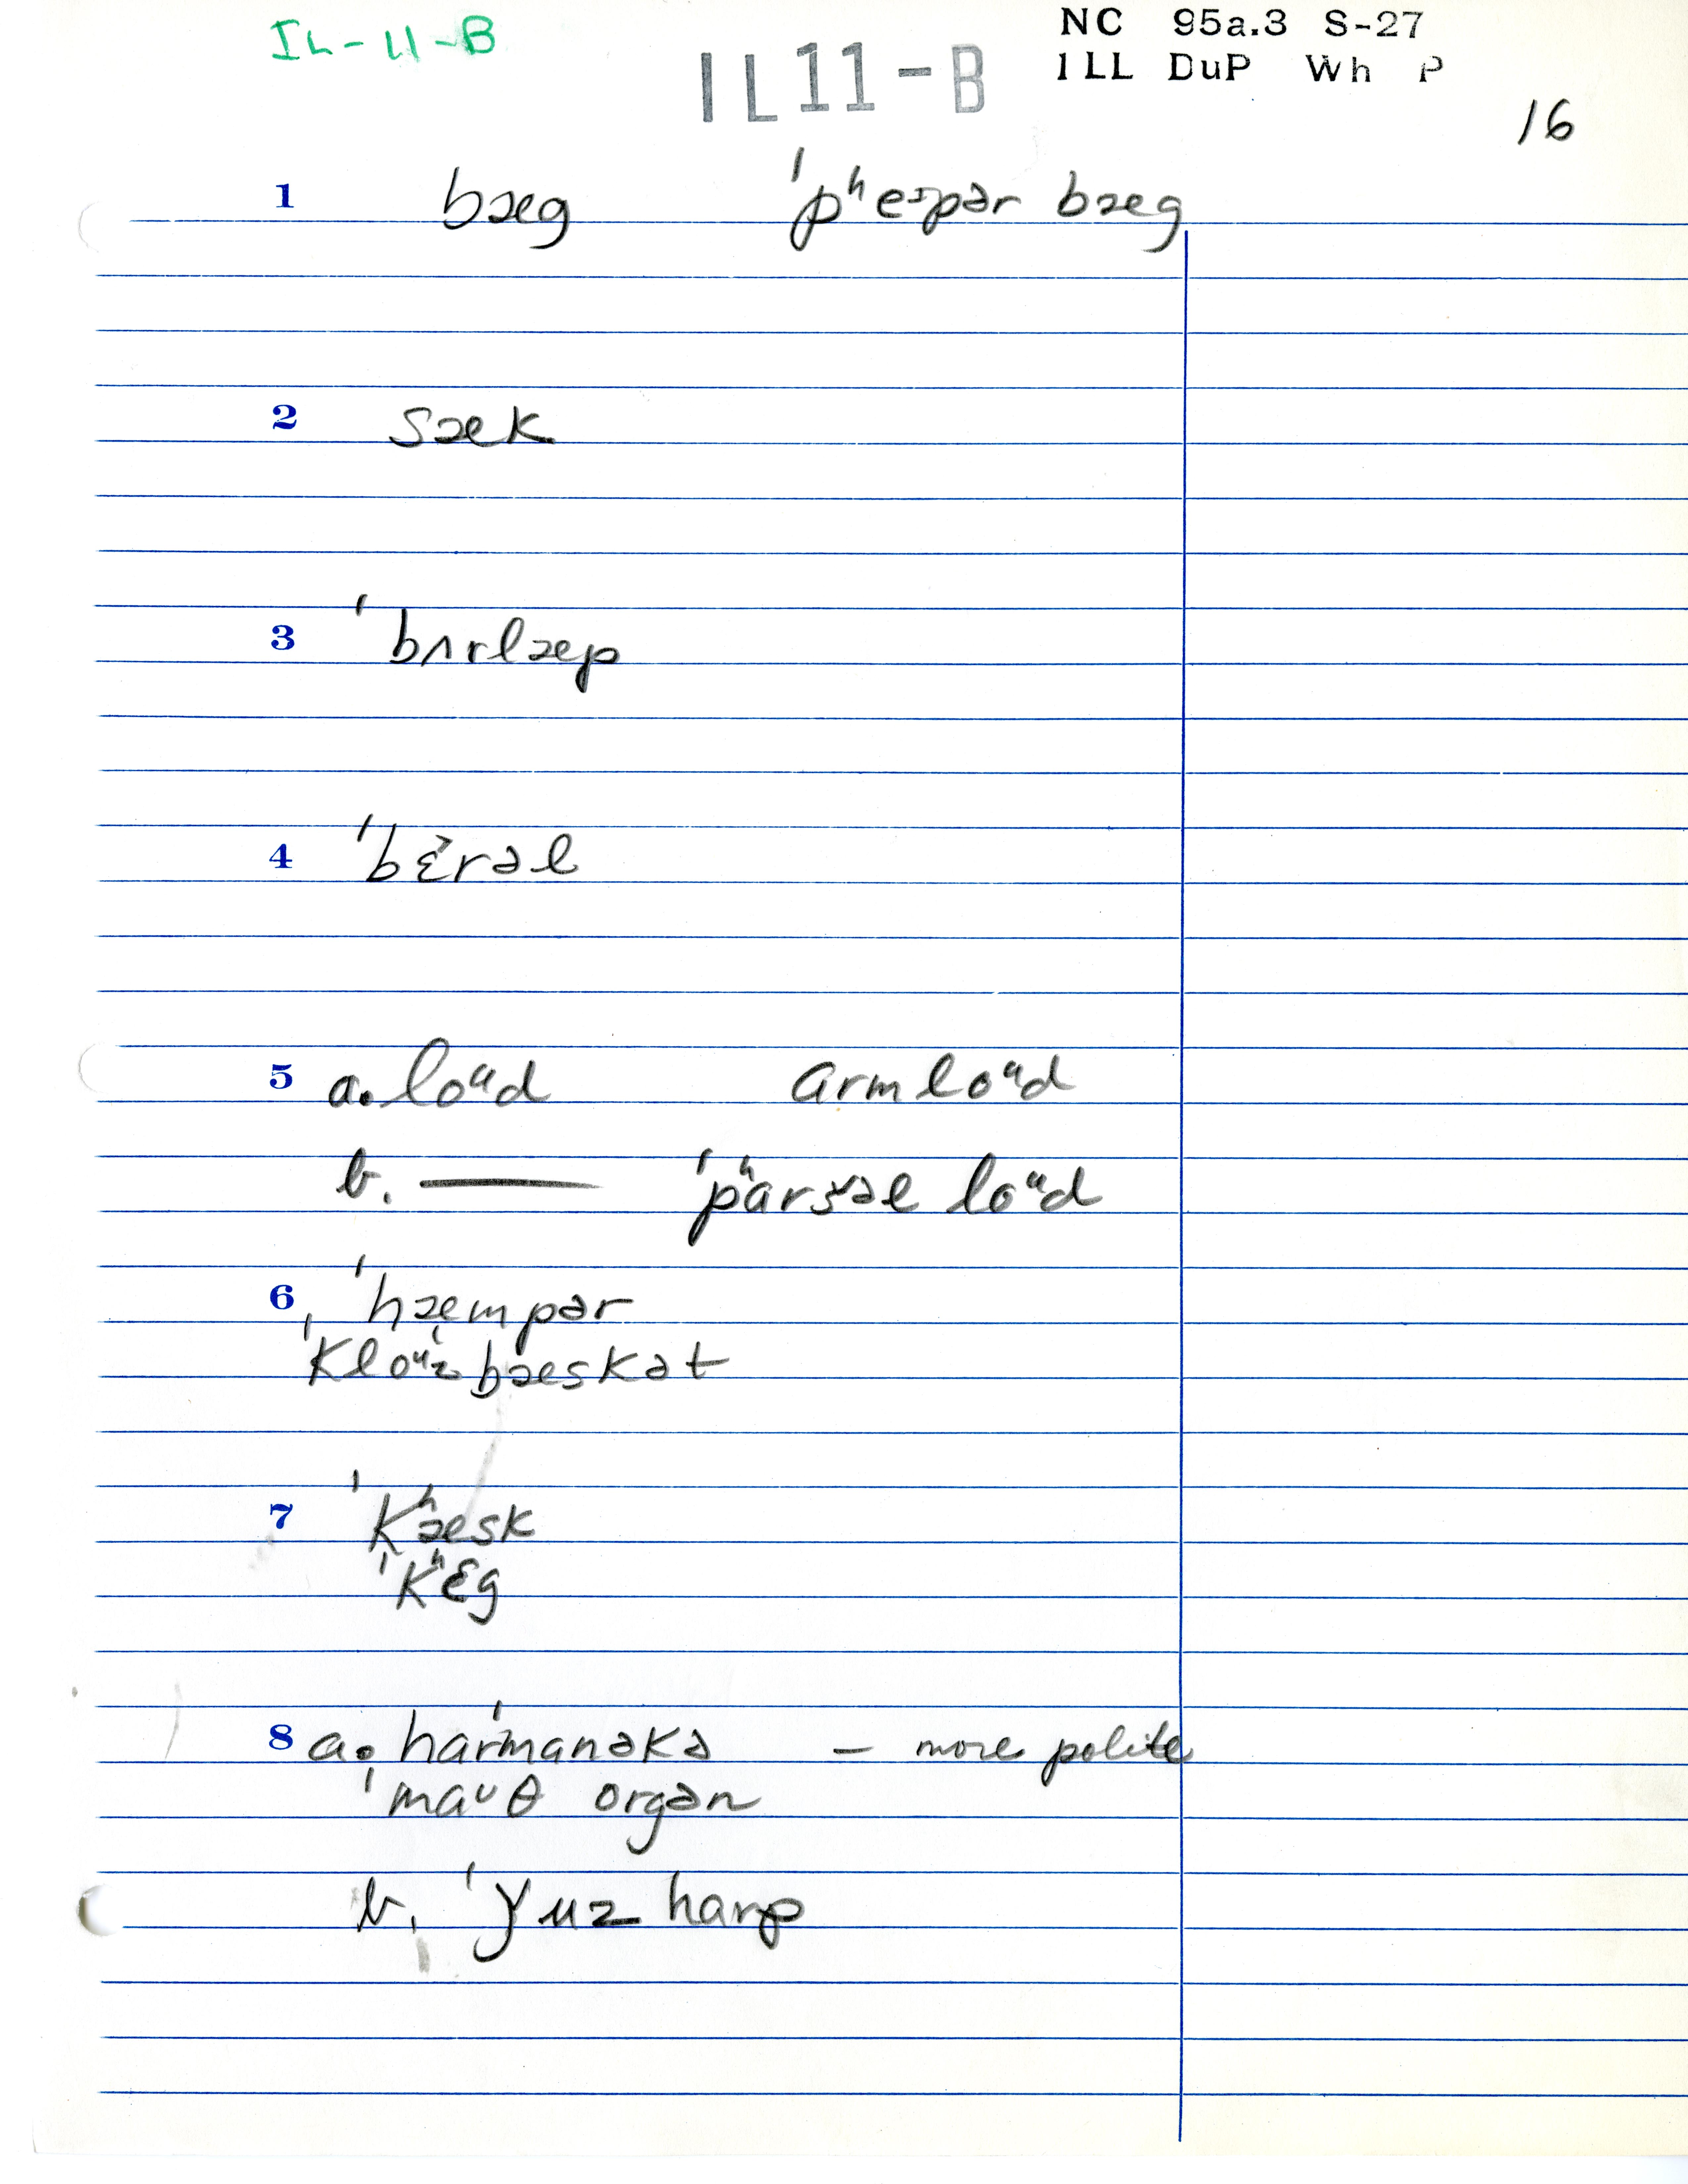 IL-11-B
IL11-B
NC 95a.3 S-27
ILL DuP Wh P
16
1 bæg ˈpʰeɪpər bæg
2 sæk
3 ˈbʌrlæp
4 ˈbɛ˃rəl
5 a. loᵘd armloᵘd
b. — ˈpʰaršəl loᵘd
6 ˈhæmpər
ˈkloᵘzˌbæskət
7 ˈkʰæsk
ˈkʰɛg
8 a. harˈmanəkə — more polite
ˈmaᴜθ orgən
b. ˈǰuz harp